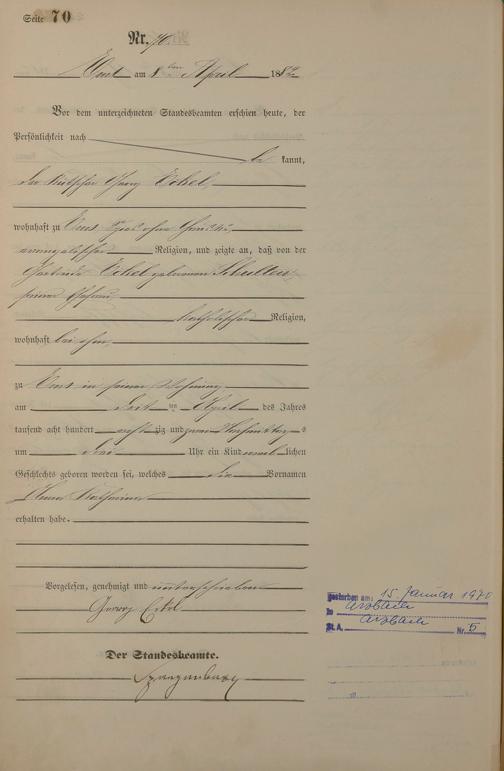 Seite 70
Nr. 70.
Ems am 8ten April 1882
Vor dem unterzeichneten Standesbeamten erschien heute, der
Persönlichkeit nach
be kannt,
der Kutscher Georg
wohnhaft zu Ems
evangelischer Religion, und zeigte an, daß von der
geborenen
seiner Ehefrau
katholischer Religion,
wohnhaft bei ihm,
zu Ems in seiner Wohnung
am ten April des Jahres
tausend acht hundert acht zig und zwei Nachmittags
um drei Uhr ein Kind weiblichen
Geschlechts geboren worden sei, welches die Vornamen
Katharina
erhalten habe.
Vorgelesen, genehmigt und unterschrieben
Georg
Der Standesbeamte.
Spangenberg
Gestorben am: 15. Januar 1970
in Arzbach
St. A. Arzbach Nr. 5